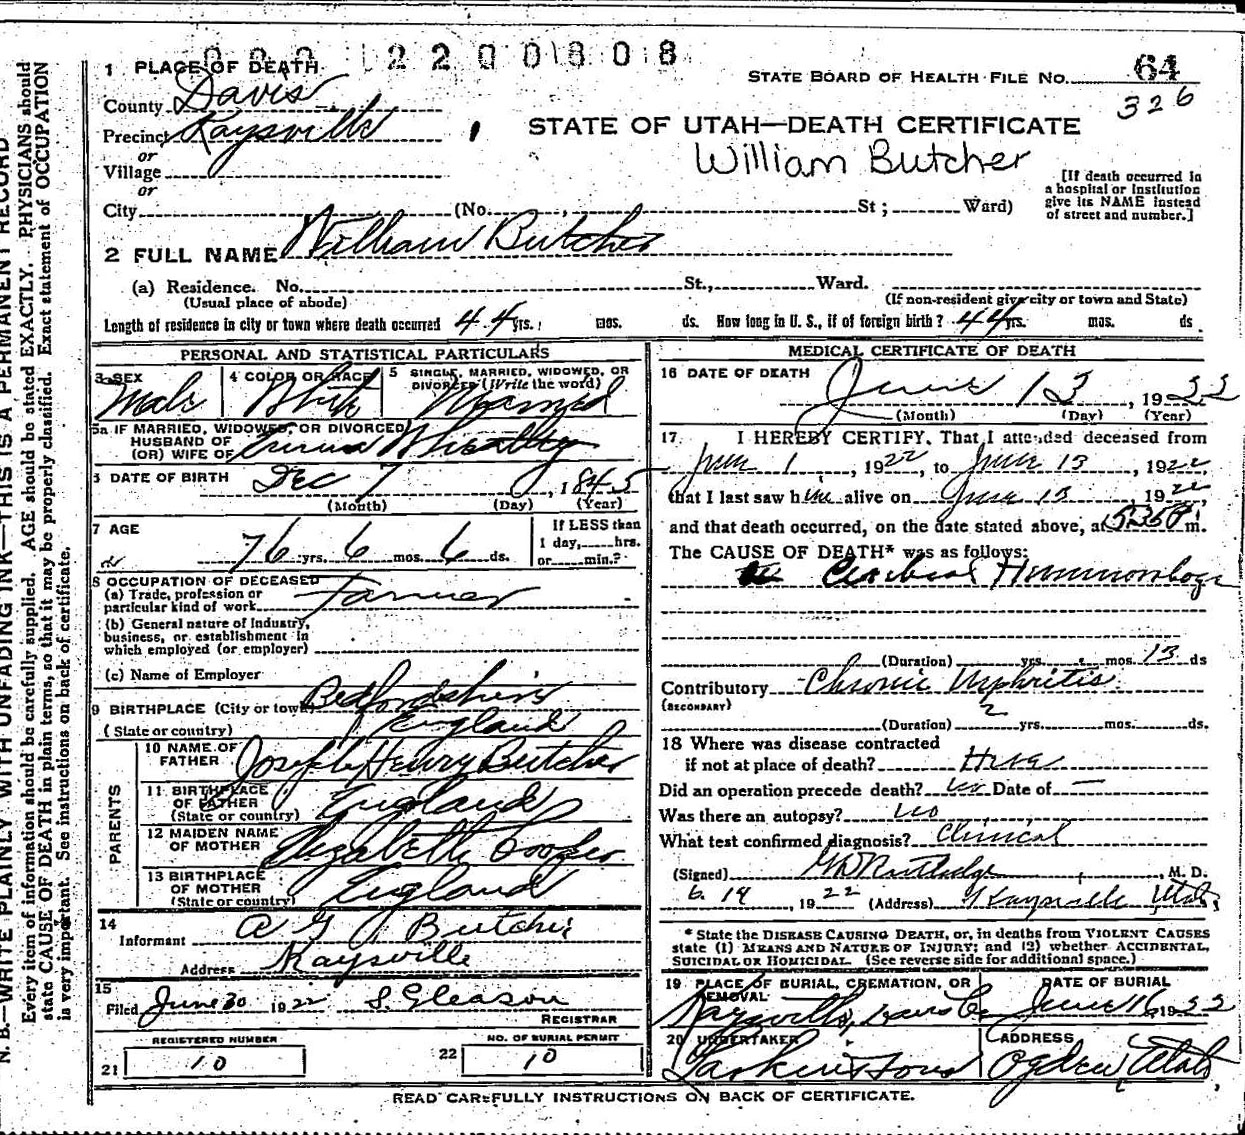 2200808
1 PLACE OF DEATH
STATE BOARD OF HEALTH FILE No. 64
326
County Davis
Precinct Kaysville
or
Village
or
City (No. St; Ward)
STATE OF UTAH—DEATH CERTIFICATE
William Butcher
[If death occurred in
a hospital or institution
give its NAME instead
of street and number.]
2 FULL NAME William Butcher
(a) Residence. No. St., Ward.
(Usual place of abode) (If non-resident give city or town and State)
Length of residence in city or town where death occurred 44 yrs. mos. ds. How long in U. S., if of foreign birth? 44 yrs. mos. ds.
PERSONAL AND STATISTICAL PARTICULARS
3 SEX Male
4 COLOR OR RACE White
5 SINGLE, MARRIED, WIDOWED, OR
DIVORCED (Write the word) Married
5a IF MARRIED, WIDOWED, OR DIVORCED
HUSBAND OF
(OR) WIFE OF Emma
DATE OF BIRTH Dec 7, 1845
(Month) (Day) (Year)
7 AGE 76 yrs. 6 mos. 6 ds.
If LESS than
1 day, hrs.
or min.?
8 OCCUPATION OF DECEASED
(a) Trade, profession or
particular kind of work Farmer
(b) General nature of Industry,
business, or establishment in
which employed (or employer)
(c) Name of Employer
9 BIRTHPLACE (City or town) Bedfordshire
(State or country) England
PARENTS
10 NAME OF
FATHER Joseph Henry Butcher
11 BIRTHPLACE
OF FATHER
(State or country) England
12 MAIDEN NAME
OF MOTHER Elizabeth Cooper
13 BIRTHPLACE
OF MOTHER
(State or country) England
14
Informant A G Butcher
Address Kaysville
15
Filed June 30 1922 S. Gleason
REGISTRAR
REGISTERED NUMBER
21 10
NO. OF BURIAL PERMIT
22 10
MEDICAL CERTIFICATE OF DEATH
16 DATE OF DEATH June 13, 1922
(Month) (Day) (Year)
17. I HEREBY CERTIFY, That I attended deceased from
June 1, 1922, to June 13, 1922,
that I last saw him alive on June 13, 1922,
and that death occurred, on the date stated above, at 535P m.
The CAUSE OF DEATH* was as follows:
Cerebral Hemmorrhage
(Duration) yrs. mos. 13 ds
Contributory Chronic Nephritis
(SECONDARY)
(Duration) 2 yrs. mos. ds.
18 Where was disease contracted
if not at place of death? Here
Did an operation precede death? no Date of —
Was there an autopsy? no
What test confirmed diagnosis? Clinical
(Signed) G D Rutledge, M. D.
6. 14, 1922 (Address) Kaysville Utah
* State the DISEASE CAUSING DEATH, or, in deaths from VIOLENT CAUSES
state (1) MEANS AND NATURE OF INJURY; and (2) whether ACCIDENTAL,
SUICIDAL OR HOMICIDAL. (See reverse side for additional space.)
19 PLACE OF BURIAL, CREMATION, OR
REMOVAL
Kaysville, Davis Co
DATE OF BURIAL
June 16, 1922
20 UNDERTAKER
Larkin & Sons
ADDRESS
Ogden Utah
READ CAREFULLY INSTRUCTIONS ON BACK OF CERTIFICATE.
N. B.—WRITE PLAINLY WITH UNFADING INK—THIS IS A PERMANENT RECORD
Every item of information should be carefully supplied. AGE should be stated EXACTLY. PHYSICIANS should
state CAUSE OF DEATH in plain terms, so that it may be properly classified. Exact statement of OCCUPATION
is very important. See instructions on back of certificate.